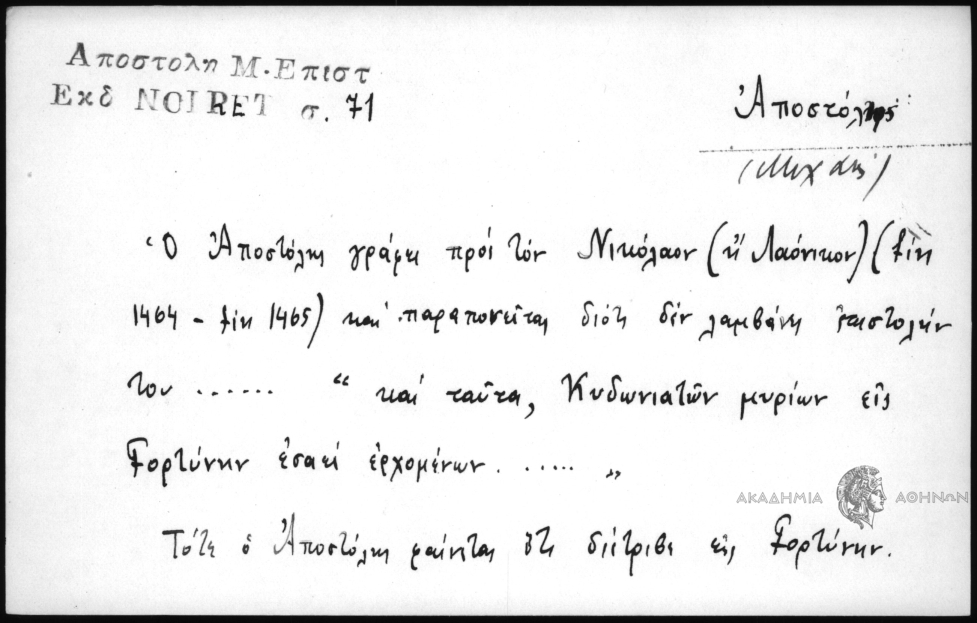 Αποστολη Μ. Επιστ
Εκδ NOIRET σ. 71
Ἀποστόλης
(Μιχαήλ)
Ὁ Ἀποστόλης γράφει πρὸς τὸν Νικόλαον (ἢ Λαόνικον) (fin
1464 – fin 1465) καὶ παραπονεῖται διότι δὲν λαμβάνει ἐπιστολήν
του ....... “ καὶ ταῦτα, Κυδωνιατῶν μυρίων εἰς
Γορτύνην ἐσαεί ἐρχομένων. ..... „
ΑΚΑΔΗΜΙΑ ΑΘΗΝΩΝ
Τότε ὁ Ἀποστόλης φαίνεται ὅτι διέτριβε εἰς Γορτύνην.